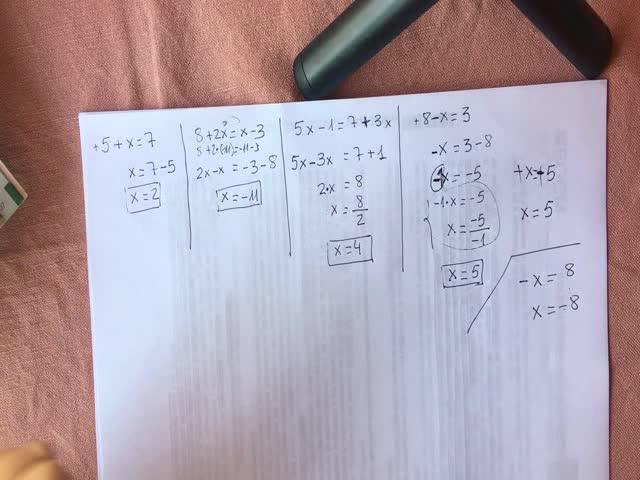 +5+x=7
x=7-5
x=2
8+2x=x-3
8+2·(-11)=-11-3
2x-x=-3-8
x=-11
5x-1=7+3x
5x-3x=7+1
2·x=8
x=8/2
x=4
+8-x=3
-x=3-8
-x=-5
-1·x=-5
x=-5/-1
x=5
x=5
-x=8
x=-8